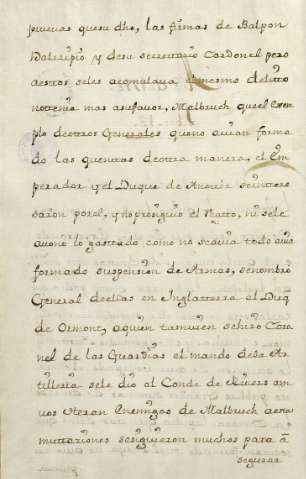 pruevas quesu dho, las firmas de Balpon
y desu secretario Cardonel pero
aestros seles acomulava elmesmo delitto
nottenia mas asufavor, Malbruch, queel Exem
plo deottros Generales queno avian forma
do las quenttas deottra manera, el Em
perador y el Duque de Anover seinttere
saron porel, y noprosiguio el Natto, ni sele
avono lo gasttado como no seavia todo avia
formado suspension de Armas, senombró
General deellas en Inglatterra el Duq
de Ormont, aquien tamvien sehizo Coro
nel de las Guardias el mando dela Ar
tilleria sele dio al Conde de Rivers am
vos Heran Enemigos de Malbruch aestas
muttaziones sesiguieron muchos para a
segurar